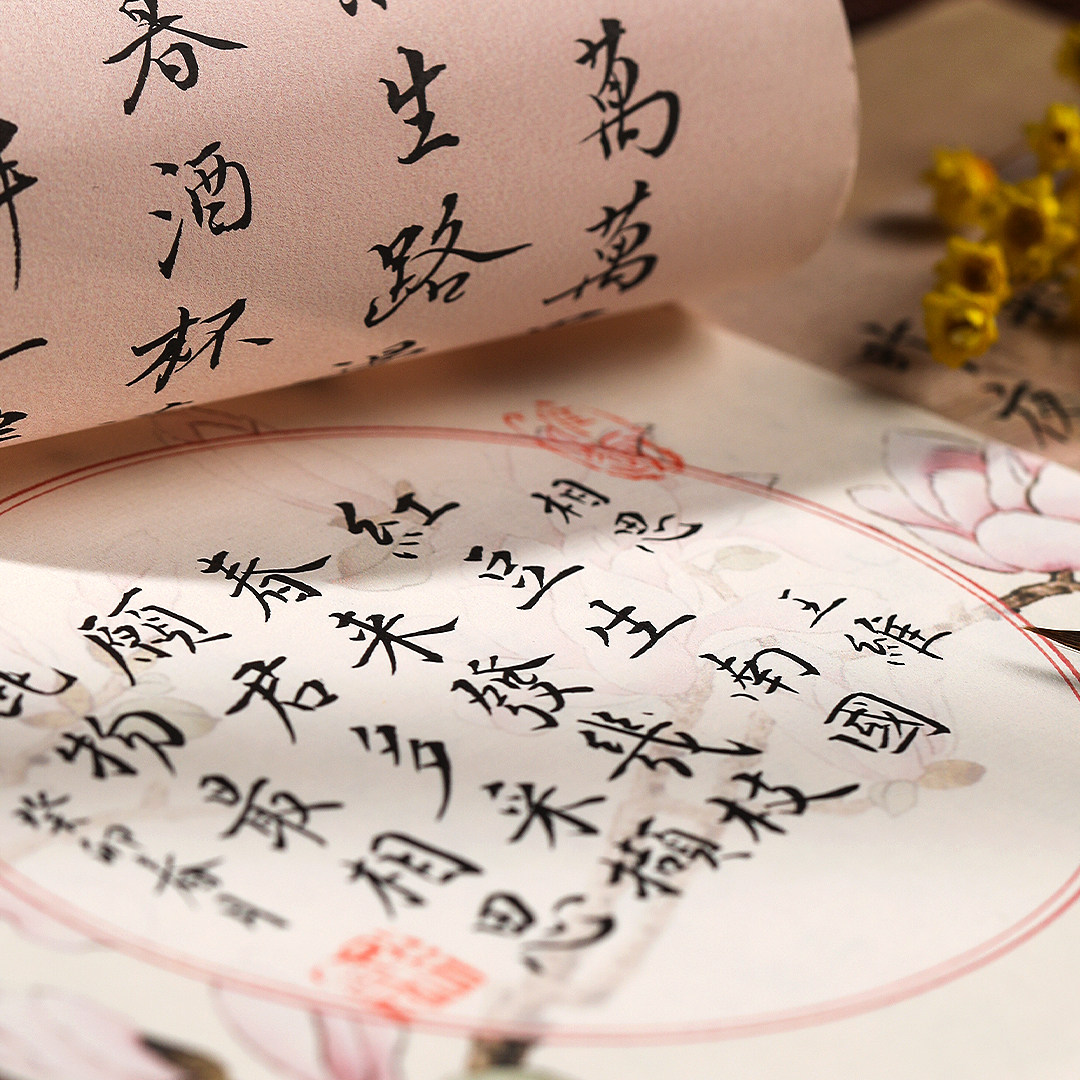 萬萬
生路
春酒杯
夜
相思 王維
紅豆生南國
春来發幾枝
願君多采擷
此物最相思
癸卯春月